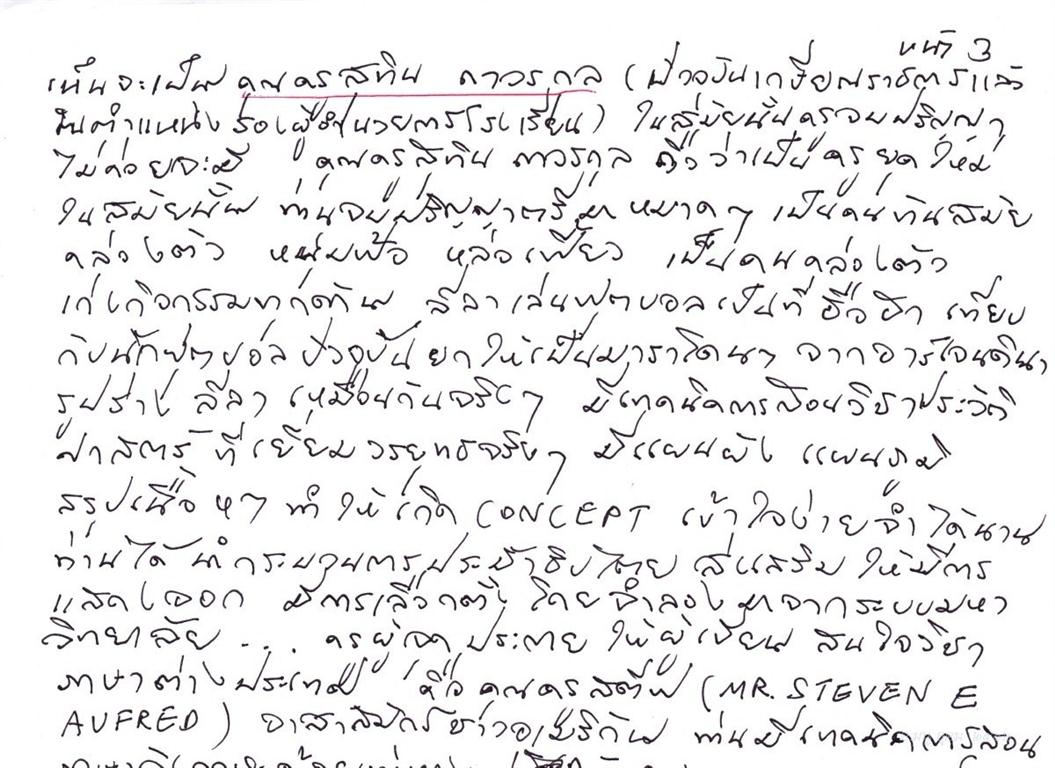 หน้า 3
เห็นจะเป็น คุณครูสุทิน ถาวรกูล (ปัจจุบันเกษียณราชการแล้ว
ในตำแหน่ง รองผู้อำนวยการโรงเรียน) ในสมัยนั้นครูจบปริญญา
ไม่ค่อยจะมี คุณครูสุทิน ถาวรกูล ถือว่าเป็นครูยุคใหม่
ในสมัยนั้น ท่านจบปริญญาตรีมาหมาดๆ เป็นคนทันสมัย
คล่องตัว หนุ่มฟ้อ หล่อเฟี้ยว เป็นคนคล่องตัว
เก่งกิจกรรมทุกด้าน ลีลาเล่นฟุตบอลเป็นที่ฮือฮา เทียบ
กับนักฟุตบอลปัจจุบันยกให้เป็นมาราโดนา จากอาร์เจนตินา
รูปร่าง ลีลา เหมือนกันจริงๆ มีเทคนิคการสอนวิชาประวัติ
ศาสตร์ ที่เยี่ยมวรยุทธจริงๆ มีแผนผัง แผนภูมิ
สรุปเนื้อหา ทำให้เกิด CONCEPT เข้าใจง่ายจำได้นาน
ท่านได้นำกระบวนการประชาธิปไตย ส่งเสริม ให้มีการ
แสดงออก มีการเลือกตั้ง โดยจำลองมาจากระบบมหา
วิทยาลัย .... ครูผู้จุดประกาย ให้ผู้เขียน สนใจวิชา
ภาษาต่างประเทศ คือ คุณครูสตีฟ (MR. STEVEN E
AUFRED) อาสาสมัครชาวอเมริกัน ท่านมีเทคนิคการสอน